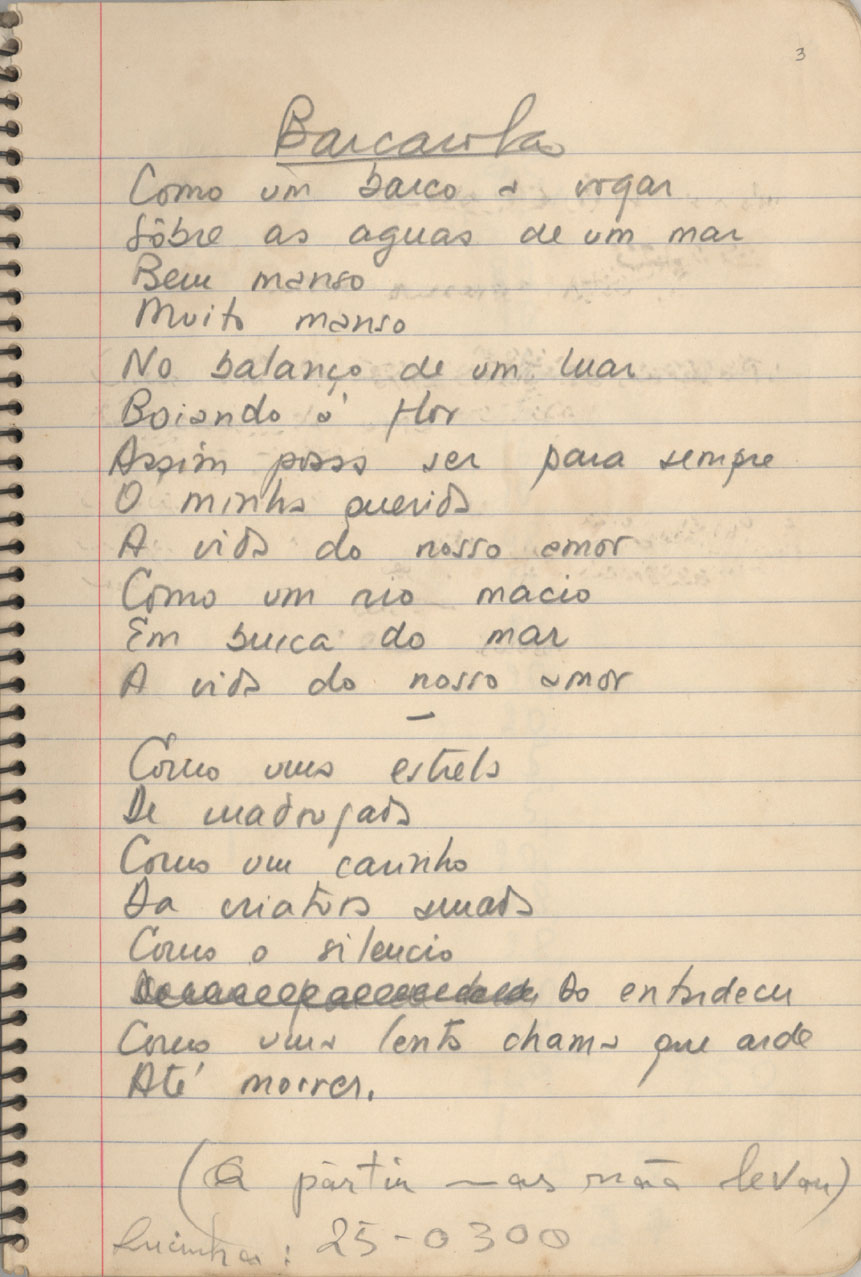 3
Barcarola
Como um barco a vogar
Sôbre as aguas de um mar
Bem manso
Muito manso
No balanço de um luar
Boiando à flor
Assim possa ser para sempre
O minha querida
A vida do nosso amor
Como um rio macio
Em busca do mar
A vida do nosso amor
–
Como uma estrela
De madrugada
Como um carinho
Da criatura amada
Como o silencio
Do entardecer
Como uma lenta chama que arde
Até morrer.
(a partir — as não levar)
: 25-0300